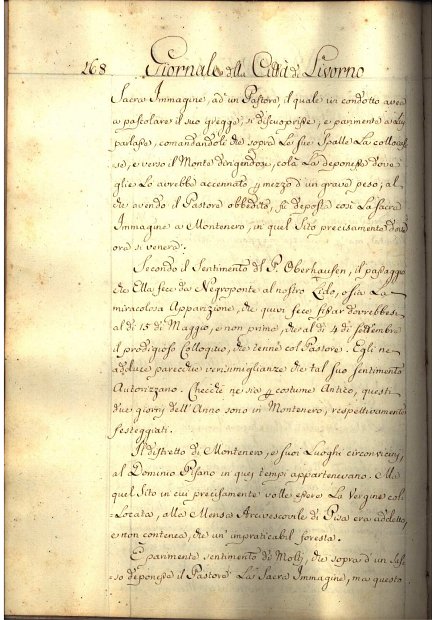 168 Giornale della Città di Livorno
Sacra Immagine, ad un Pastore, il quale in condotto avea
a pascolare il suo gregge, si discuoprisse, e parimente a Lui
parlasse, comandandole che sopra Le sue Spalle La collocas-
se, e verso il Monte dirigendosi, colà La deponesse dove
glie Lo avrebbe accennato p mezzo d'un grave peso; al
che avendo il Pastore obbedito, fù deposta così La Sacra
Immagine a Montenero, in quel Sito precisamente dove
ora si venera.
Secondo il Sentimento del P. Oberhausen, il passaggio
che Ella fece da Negroponte al nostro Lido, o sia La
miracolosa Apparizione, che quivi fece fissar dovrebbesi
al dì 15 di Maggio, e non prima, che al dì 4 di settembre
il prodigioso Colloquio, che tenne col Pastore. Egli ne
adduce parecchie verisimiglianze che tal suo sentimento
Autorizzano. Checchè ne sia p costume Antico, questi
due giorni dell'Anno sono in Montenero, respettivamente
festeggiati.
Il distretto di Montenero, e suoi Luoghi circonvicini,
al Dominio Pisano in quei tempi appartenevano. Ma
quel Sito in cui precisamente volle essere La Vergine col-
=Locata, alla Mensa Arcivescovile di Pisa era addetto,
e non contenea, che un'impraticabil foresta.
È parimente sentimento di Molti, che sopra d'un Sas-
so deponesse il Pastore La Sacra Immagine, ma questo